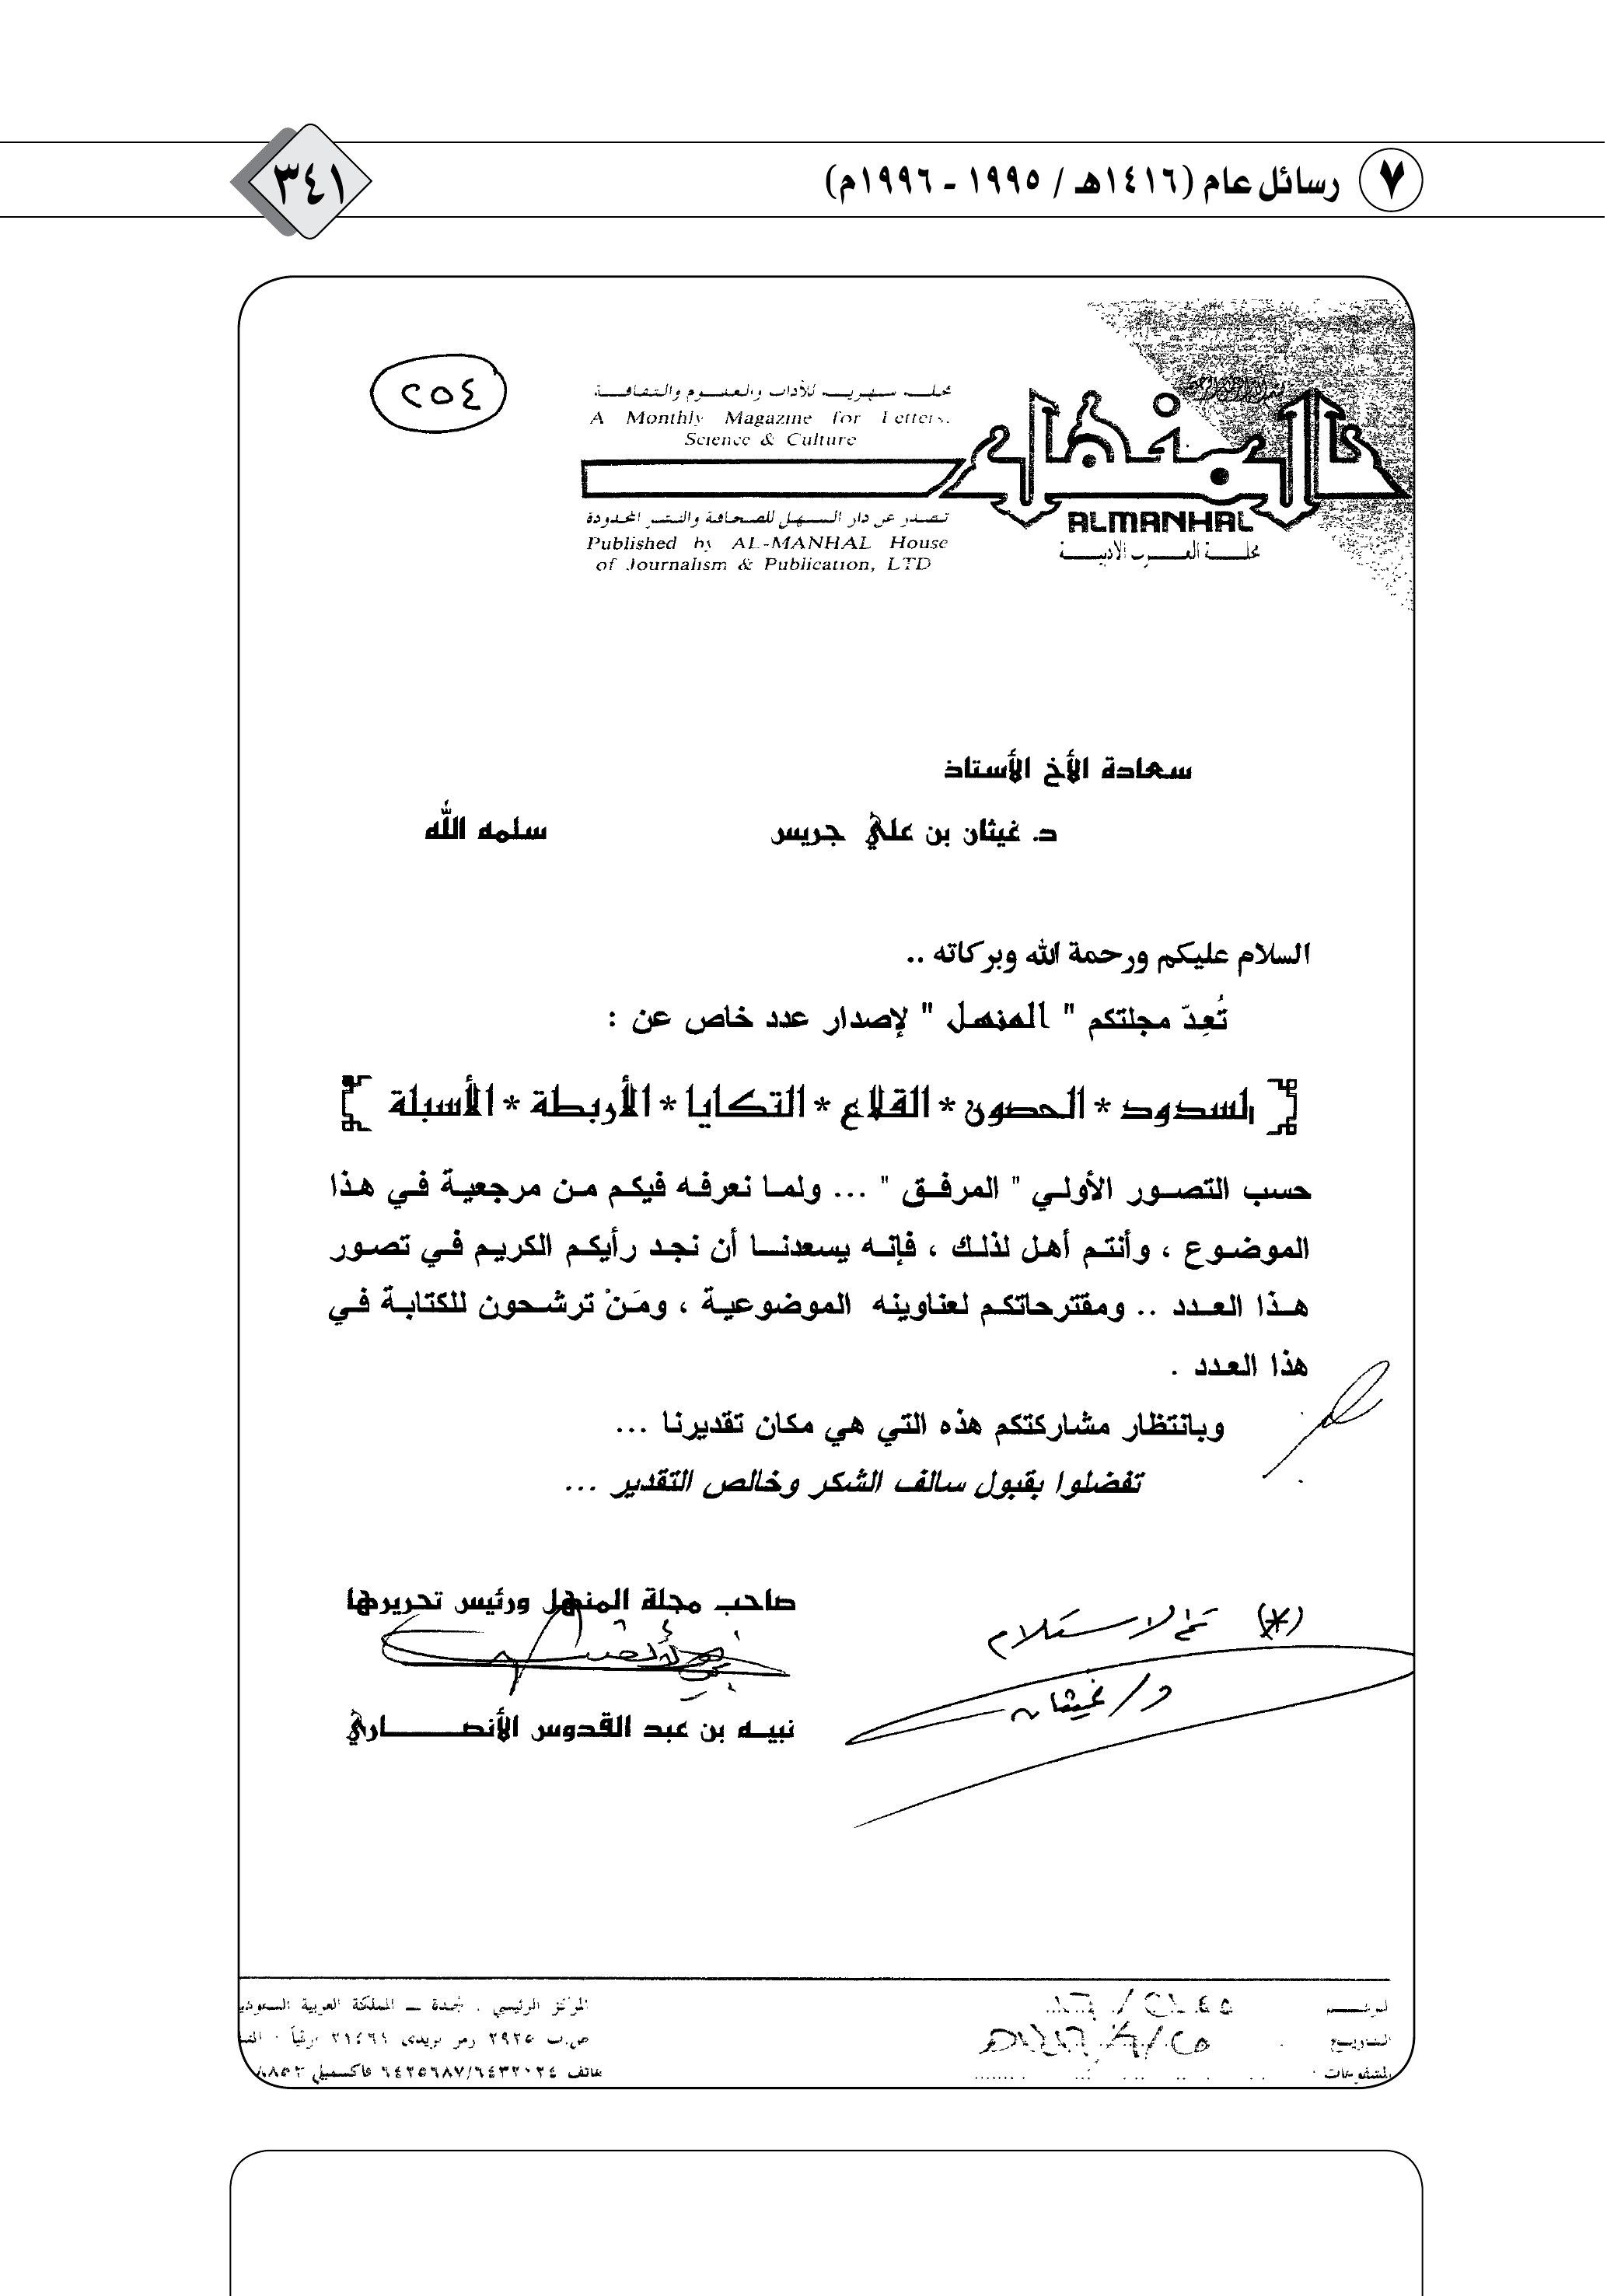 ٧ رسائل عام (١٤١٦هـ / ١٩٩٥ - ١٩٩٦م)
٣٤١
٢٥٤
مجلـة شهريـة للآداب والعلـوم والثقافـة
A Monthly Magazine for Letters,
Science & Culture
المنهل
ALMANHAL
مجلـة العـرب الأدبيـة
تصـدر عن دار المنـهل للصحافة والنشـر المحدودة
Published by AL-MANHAL House
of Journalism & Publication, LTD
سعادة الأخ الأستاذ
د. غيثان بن علي جريس سلمه الله
السلام عليكم ورحمة الله وبركاته ..
تُعِدّ مجلتكم " المنهل " لإصدار عدد خاص عن :
السدود * الحصون * القلاع * التكايا * الأربطة * الأسبلة
حسب التصور الأولي " المرفق " ... ولما نعرفه فيكم من مرجعية في هذا
الموضوع ، وأنتم أهل لذلك ، فإنه يسعدنا أن نجد رأيكم الكريم في تصور
هذا العدد .. ومقترحاتكم لعناوينه الموضوعية ، ومَنْ ترشحون للكتابة في
هذا العدد .
وبانتظار مشاركتكم هذه التي هي مكان تقديرنا ...
تفضلوا بقبول سالف الشكر وخالص التقدير ...
صاحب مجلة المنهل ورئيس تحريرها
نبيه بن عبد القدوس الأنصاري
(*) تم الاستلام
د/ غيثان
الرقـــم
التاريـخ
المشفوعات
المركز الرئيسي . جدة ــ المملكة العربية السعودي
ص.ب ٢٩٢٥ رمز بريدي ٢١٤٦١ برقياً
هاتف ٦٤٣٢٠٢٤/٦٤٢٥٦٨٧ فاكسميلي